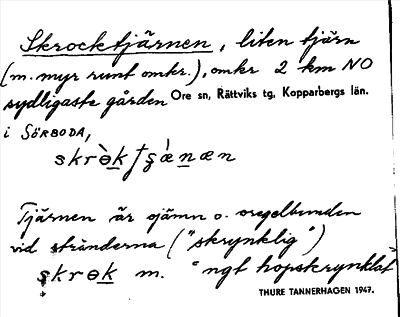 Skrocktjärnen, liten tjärn
(m. myr runt omkr.), omkr 2 km NO
sydligaste gården Ore sn, Rättviks tg, Kopparbergs län.
i SÖRBODA,
skrɵ̀k/ʂǽnæn
Tjärnen är ojämn o. oregelbunden
vid stränderna ("skrynklig")
skrɵk m. "ngt hopskrynklat"
THURE TANNERHAGEN 1947.